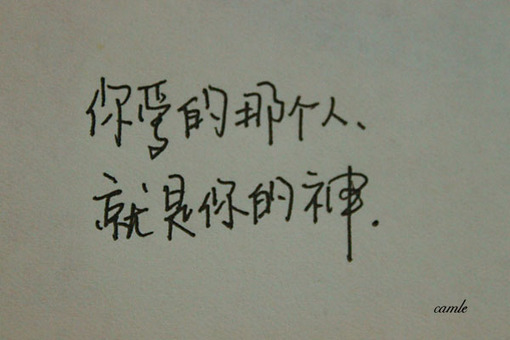 你爱的那个人、
就是你的神.
camle